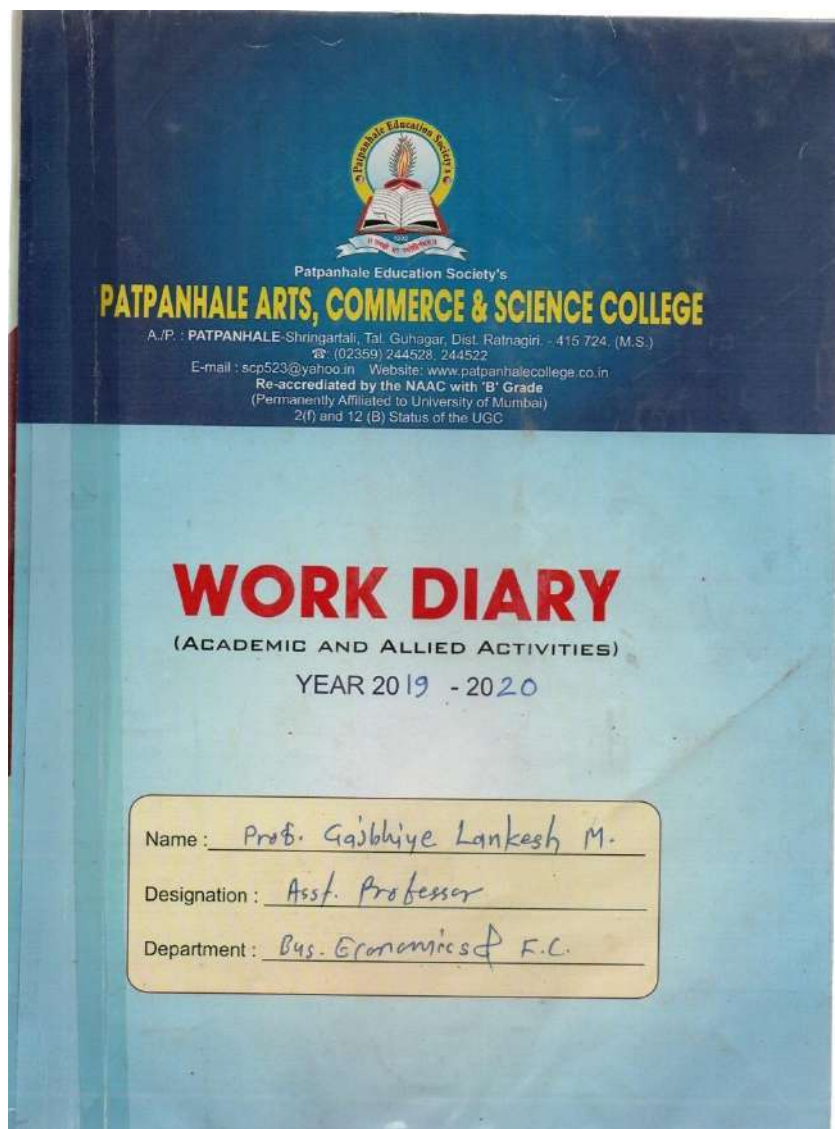 Patpanhale Education Society's
Patpanhale Education Society's
PATPANHALE ARTS, COMMERCE & SCIENCE COLLEGE
A./P. : PATPANHALE-Shringartali, Tal. Guhagar, Dist. Ratnagiri. - 415 724. (M.S.)
☎ (02359) 244528, 244522
E-mail : scp523@yahoo.in Website: www.patpanhalecollege.co.in
Re-accrediated by the NAAC with 'B' Grade
(Permanently Affiliated to University of Mumbai)
2(f) and 12 (B) Status of the UGC
WORK DIARY
(ACADEMIC AND ALLIED ACTIVITIES)
YEAR 2019 - 2020
Name : Prof. Gajbhiye Lankesh M.
Designation : Asst. Professor
Department : Bus. Economics & F.C.